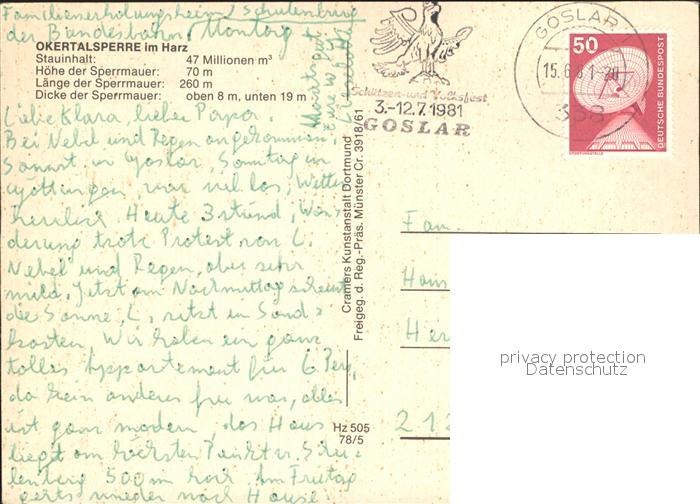 Familienerholungsheim Schulenburg
der Bundesbahn, Montag
OKERTALSPERRE im Harz
Stauinhalt: 47 Millionen m³
Höhe der Sperrmauer: 70 m
Länge der Sperrmauer: 260 m
Dicke der Sperrmauer: oben 8 m, unten 19 m
Liebe Klara, lieber Papa.
Bei Nebel und Regen angekommen.
Sonnt. in Goslar, Sonntag in
Göttingen, war viel los, Wetter
herrlich. Heute 3 stünd. Wan-
derung trotz Protest von L.
Nebel und Regen, aber sehr
mild. Jetzt am Nachmittag scheint
die Sonne, L. sitzt im Sand-
kasten, Wir haben ein ganz
tolles Appartement für 6 Pers,
da kein anderes frei war, alles
ist ganz modern, das Haus
liegt am höchsten Punkt v. Schu-
lenberg 500 m hoch. Am Freitag
gehts wieder nach Hause.
Cramers Kunstanstalt Dortmund
Freigeg. d. Reg.-Präs. Münster Cr. 3918/61
Hz 505
78/5
Schützen-und Volksfest
3.-12.7.1981
GOSLAR
GOSLAR
15.6.81-20
338
50
DEUTSCHE BUNDESPOST
Fam.
Hans
Her
212
privacy protection
Datenschutz